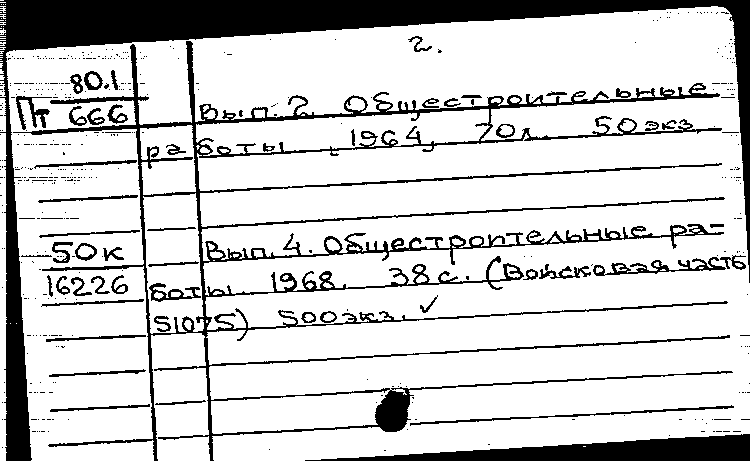 2.
80.1
Пт 666 Вып. 2. Общестроительные
работы. [1964], 70л. 50экз.
50к Вып. 4. Общестроительные ра=
16226 боты. 1968. 38с. (Войсковая часть
51075) 500экз. ✓